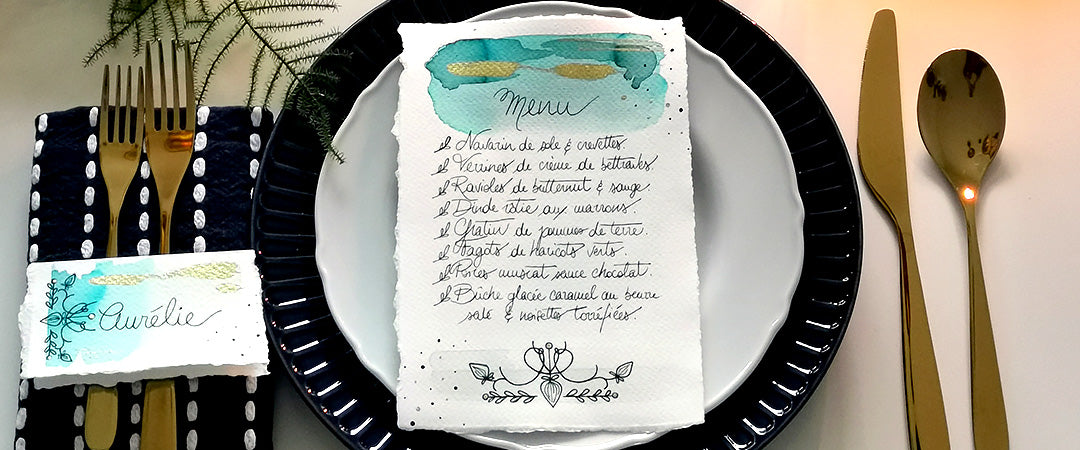 Menu
Navarin de sole & crevettes.
Verrines de crème de bettraves.
Ravioles de butternut & sauge.
Dinde rôtie aux marrons.
Gratin de pommes de terre.
Fagots de Haricots verts.
Poires muscat sauce chocolat.
Bûche glacée caramel au beurre
salé & noisettes torréfiées.
Aurélie